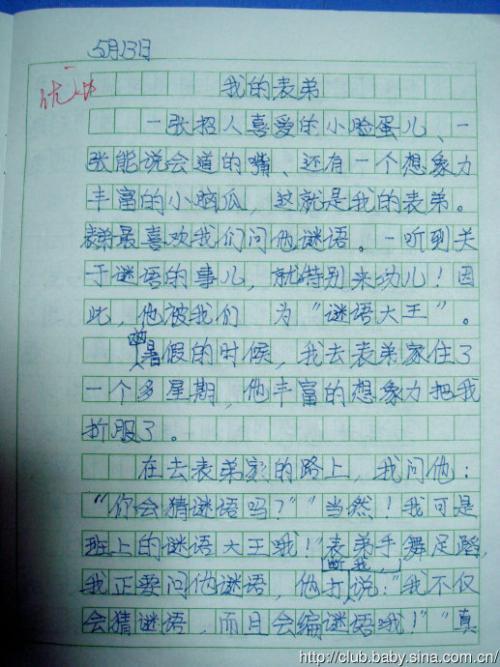 5月13日
优
我的表弟
一张招人喜爱的小脸蛋儿、一
张能说会道的嘴、还有一个想象力
丰富的小脑瓜，这就是我的表弟。
表弟最喜欢我们问他谜语。一听到关
于谜语的事儿，就特别来劲儿！因
此，他被我们 为“谜语大王”。
暑假的时候，我去表弟家住了
一个多星期，他丰富的想象力把我
折服了。
在去表弟家的路上，我问他：
“你会猜谜语吗？”“当然！我可是
班上的谜语大王哦！”表弟手舞足蹈，
我正要问他谜语，他打断我，说：“我不仅
会猜谜语，而且会编谜语哦！”“真
http://club.baby.sina.com.cn/